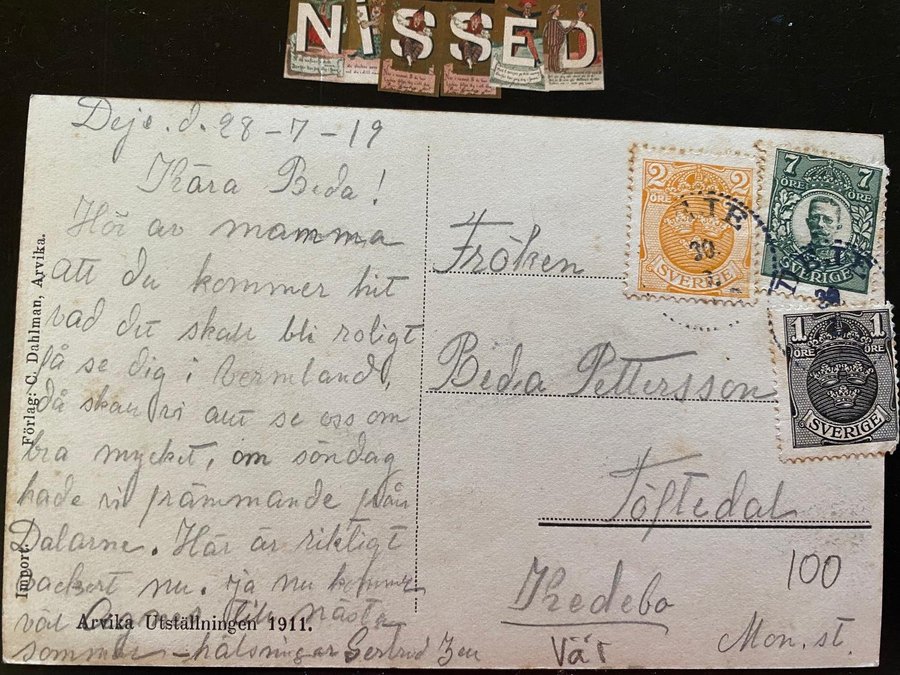 NISSED
Deje. d. 28-7-19
Kära Beda!
Hör av mamma
att du kommer hit
vad det skall bli roligt
få se dig i Vermland,
då skall vi allt se oss om
bra mycket, om söndag
hade vi främmande från
Dalarne. Här är riktigt
vackert nu. ja nu kommer
väl till nästa
sommar - hälsningar Gertrud
Förlag: C. Dahlman, Arvika.
Import.
Arvika Utställningen 1911.
Fröken
Beda Pettersson
Töftedal
Hedebo
100
Mon. st.
2 2
ÖRE ÖRE
SVERIGE
7 7
ÖRE ÖRE
SVERIGE
1 1
ÖRE ÖRE
SVERIGE
30.
30